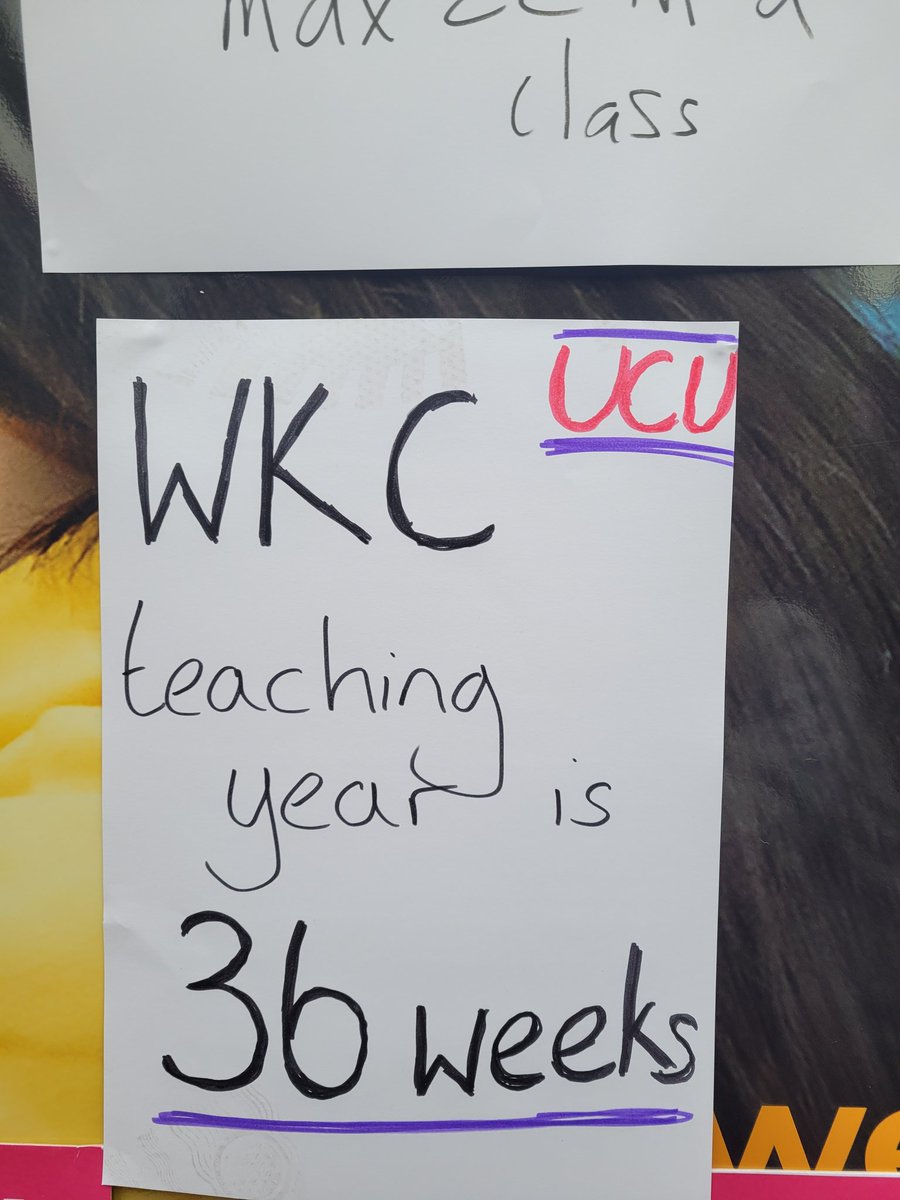 max 22 in a
class
UCU
WKC
teaching
year is
36 weeks
we